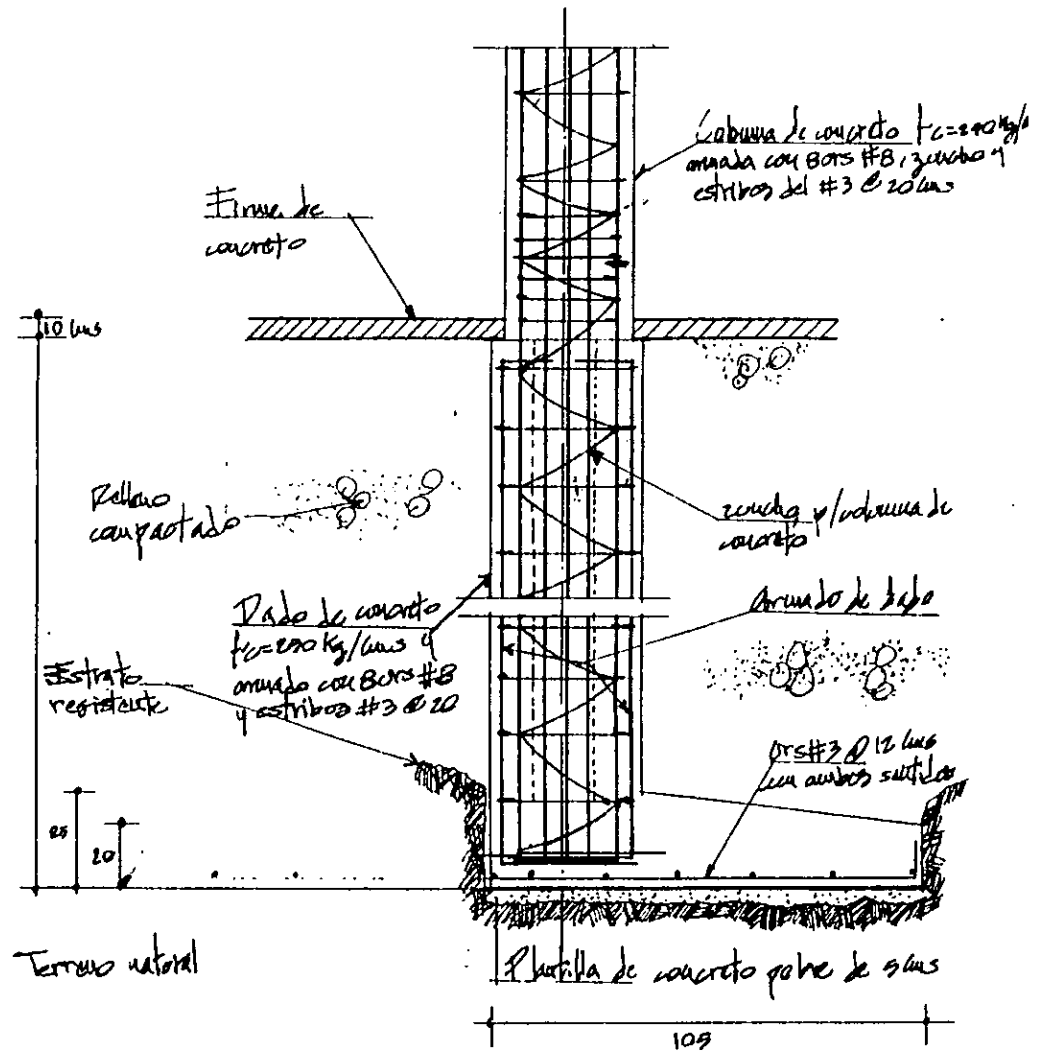 Columna de concreto f'c=290 kg/
armada con 8 vrs #8, zuncho y
estribos del #3 @ 20 cms
Firme de
concreto
10 cms
Relleno
compactado
zuncho p/columna de
concreto
Dado de concreto
f'c=290 kg/cms y
armado con 8 vrs #8
y estribos #3 @ 20
Armado de dado
Estrato
resistente
vrs #3 @ 12 cms
en ambos sentidos
25
20
Terreno natural
Plantilla de concreto pobre de 5 cms
105